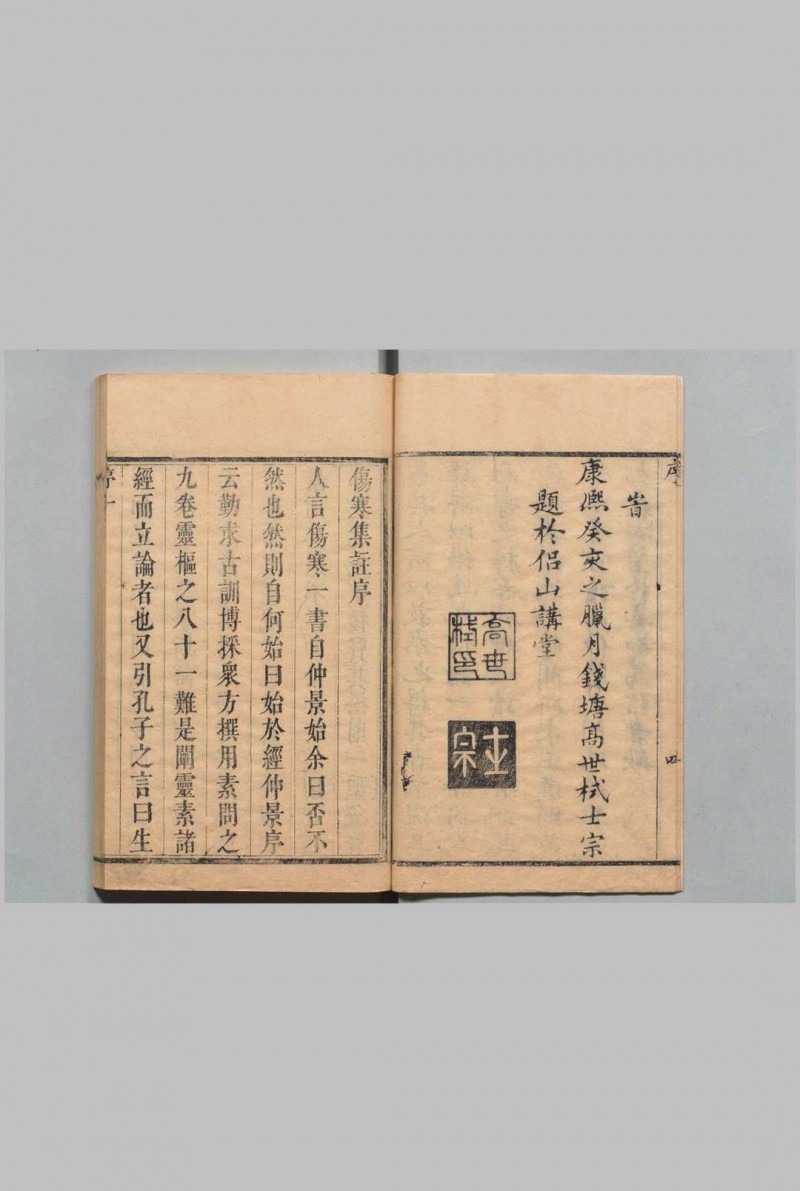 序
旹
康熙癸亥之臘月錢塘高世栻士宗
題於侶山講堂
高世栻印
士宗
四
傷寒集註序
人言傷寒一書自仲景始余曰否不
然也然則自何始曰始於經仲景序
云勤求古訓博採衆方撰用素問之
九卷靈樞之八十一難是闡靈素諸
經而立論者也又引孔子之言曰生
序